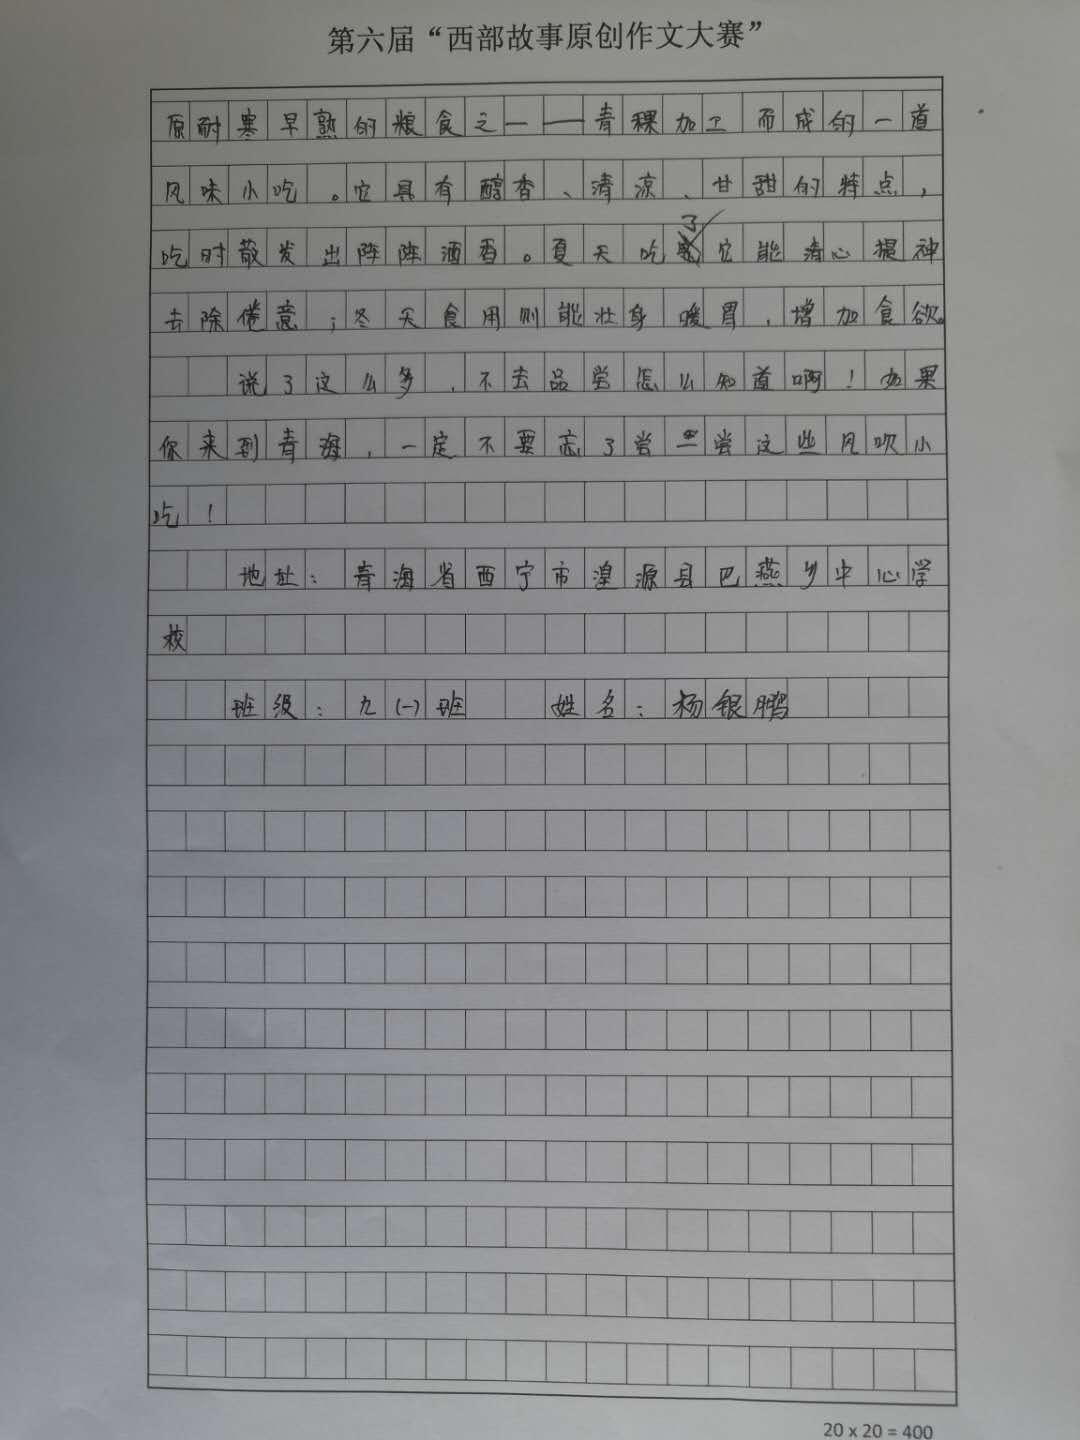 第六届“西部故事原创作文大赛”
原耐寒早熟的粮食之一——青稞加工而成的一道
风味小吃。它具有醇香、清凉、甘甜的特点，
吃时散发出阵阵酒香。夏天吃了它能清心提神
去除倦意；冬天食用则能壮身暖胃，增加食欲。
说了这么多，不去品尝怎么知道啊！如果
你来到青海，一定不要忘了尝一尝这些风吹小
吃！
地址：青海省西宁市湟源县巴燕乡中心学
校
班级：九(一)班 姓名：杨银鹏
20 x 20 = 400